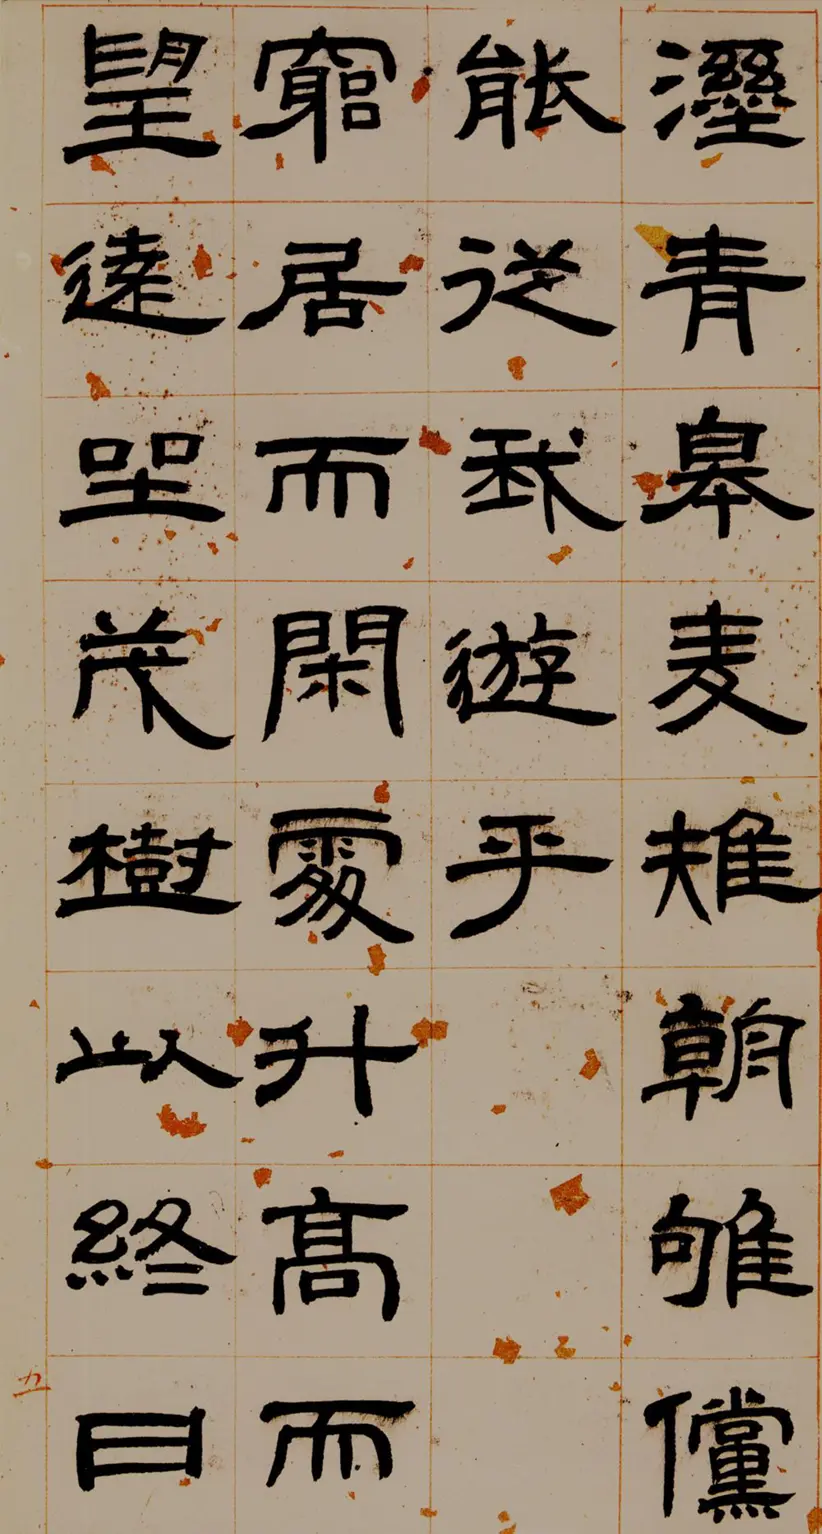 溼青皋麦雉朝雊儻
能從我遊乎
窮居而閑處升高而
望遠坐茂樹以終日
五